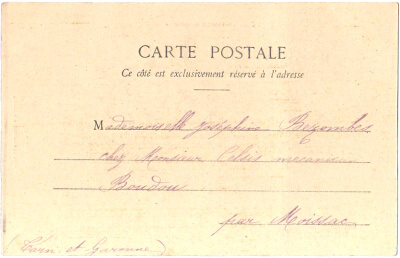 CARTE POSTALE
Ce côté est exclusivement réservé à l'adresse
Mademoiselle Joséphine Bezombes
chez Monsieur Celsis mecanicien
Boudou
par Moissac
(Tarn et Garonne)